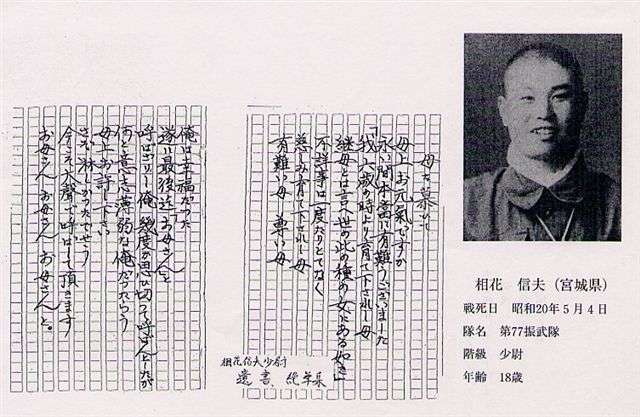 母を慕ひて
母上お元氣ですか
永い間本当に有難うございました
「我六歳の時より育て下されし母
継母とは言へ世の此の種の女にある如き」
不祥事は一度たりとてなく
慈しみ育て下されし母
有難い母 尊い母
俺は幸福だった
遂に最後迄「お母さん」と
呼ばざりし俺 幾度か思ひ切って呼ばんとしたが
何と意志薄弱な俺だったらう
母上お許し下さい
さぞ淋しかったでせう
今こそ大聲で呼ばして頂きます
お母さん お母さん お母さんと。
相花信夫少尉
遺書、
相花 信夫(宮城県)
戦死日 昭和20年5月4日
隊名 第77振武隊
階級 少尉
年齢 18歳